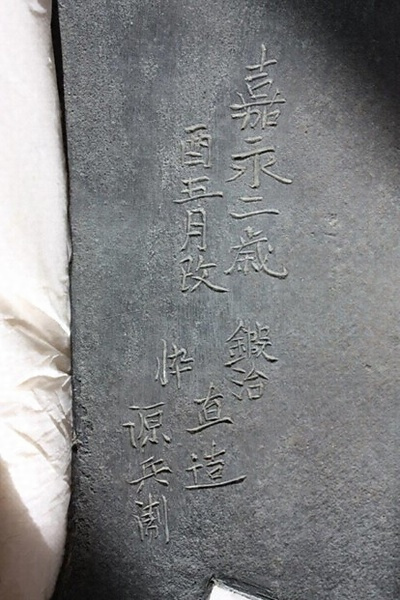 嘉永二歳
酉五月改
鍛冶
直造
忰
源兵衛